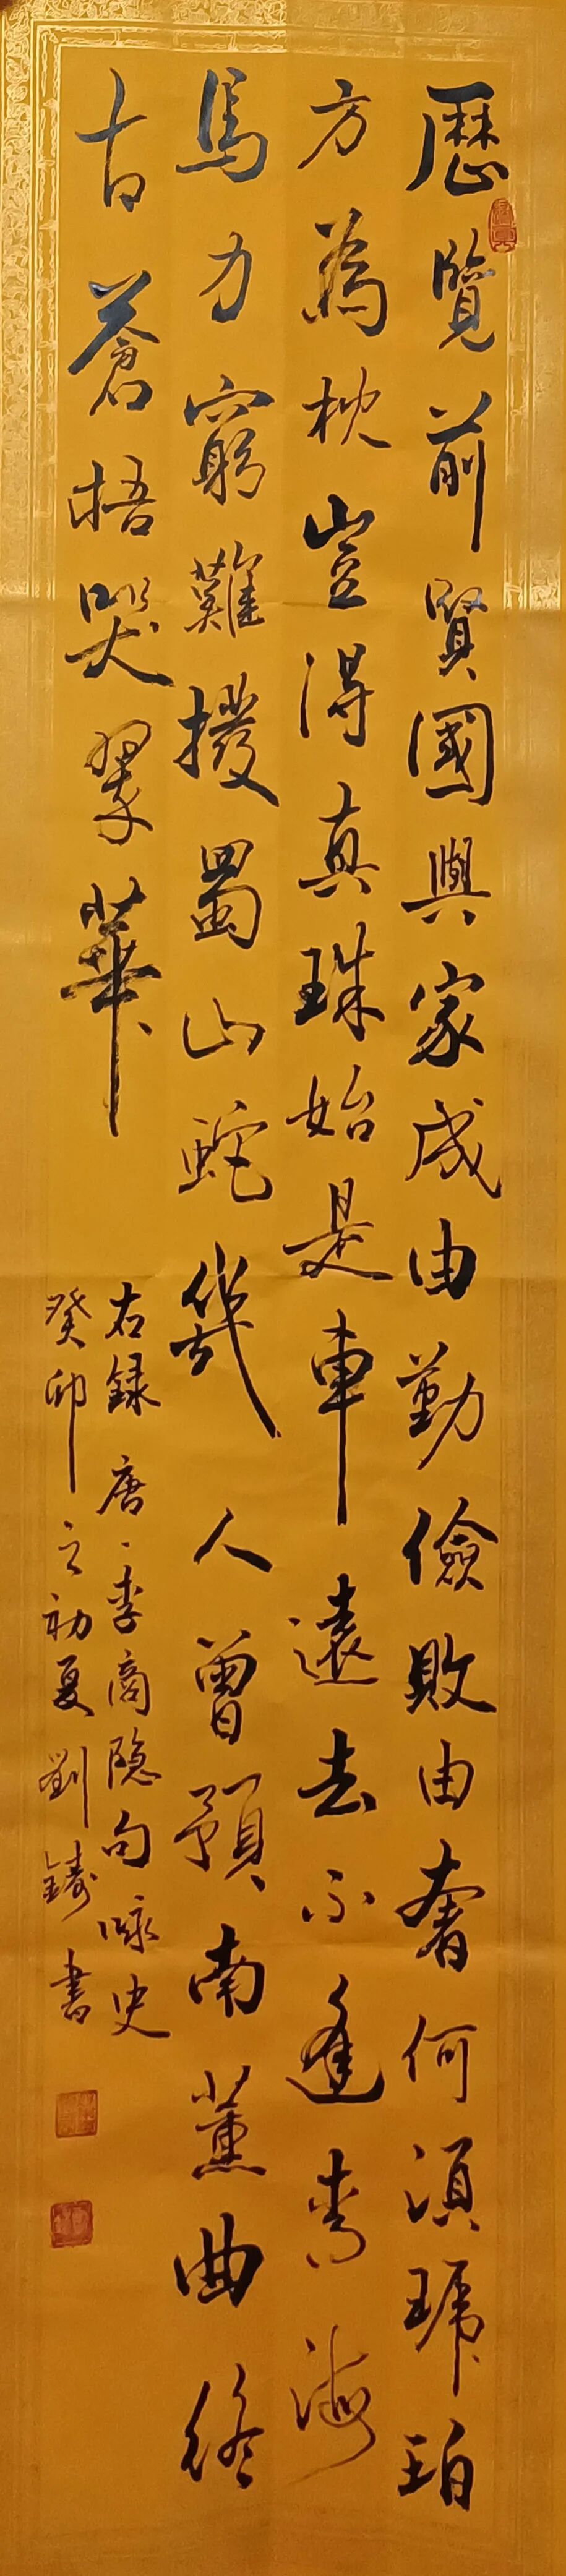 歴覽前賢國與家成由勤儉敗由奢何湏琥珀
方為枕豈得真珠始是車遠去不逢青海
馬力窮難撥蜀山蛇幾人曾預南薰曲終
古蒼梧哭翠華
右録唐、李商隐句咏史
癸卯之初夏劉鑄書